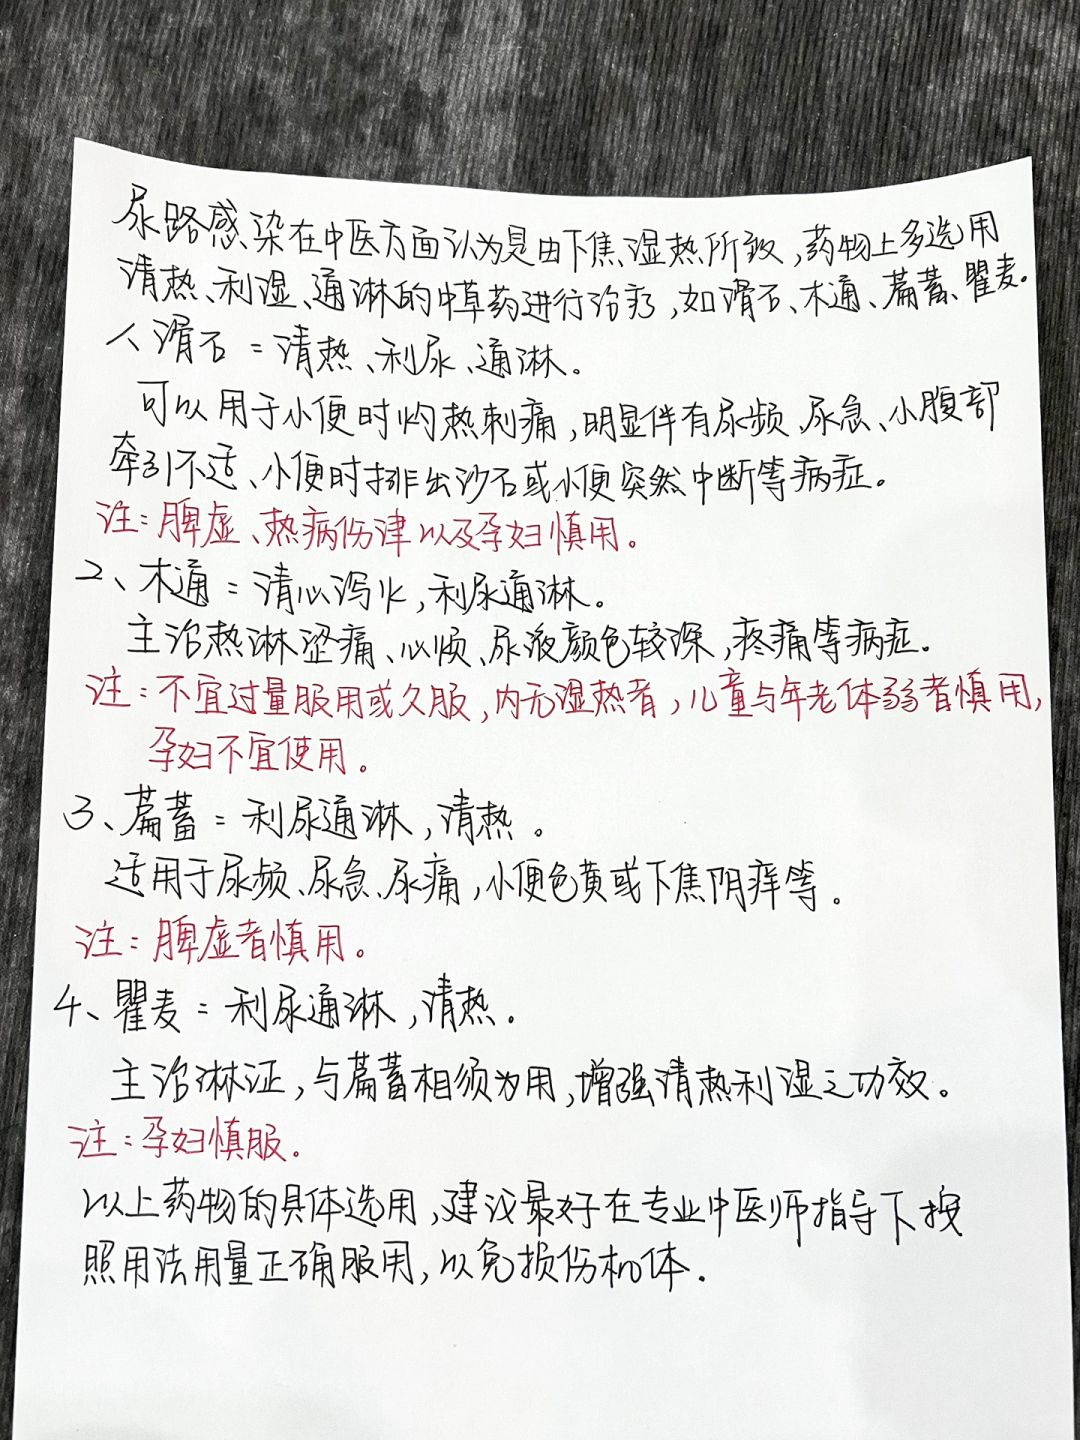 尿路感染在中医方面认为是由下焦湿热所致,药物上多选用
清热、利湿、通淋的中草药进行治疗,如滑石、木通、萹蓄、瞿麦。
1、滑石:清热、利尿、通淋。
可以用于小便时灼热刺痛,明显伴有尿频、尿急、小腹部
牵引不适、小便时排出沙石或小便突然中断等病症。
注:脾虚、热病伤津以及孕妇慎用。
2、木通:清心泻火,利尿通淋。
主治热淋涩痛、心烦、尿液颜色较深,疼痛等病症。
注:不宜过量服用或久服,内无湿热者,儿童与年老体弱者慎用,
孕妇不宜使用。
3、萹蓄:利尿通淋,清热。
适用于尿频、尿急、尿痛,小便色黄或下焦阴痒等。
注:脾虚者慎用。
4、瞿麦:利尿通淋,清热.
主治淋证,与萹蓄相须为用,增强清热利湿之功效。
注:孕妇慎服.
以上药物的具体选用,建议最好在专业中医师指导下按
照用法用量正确服用,以免损伤机体.